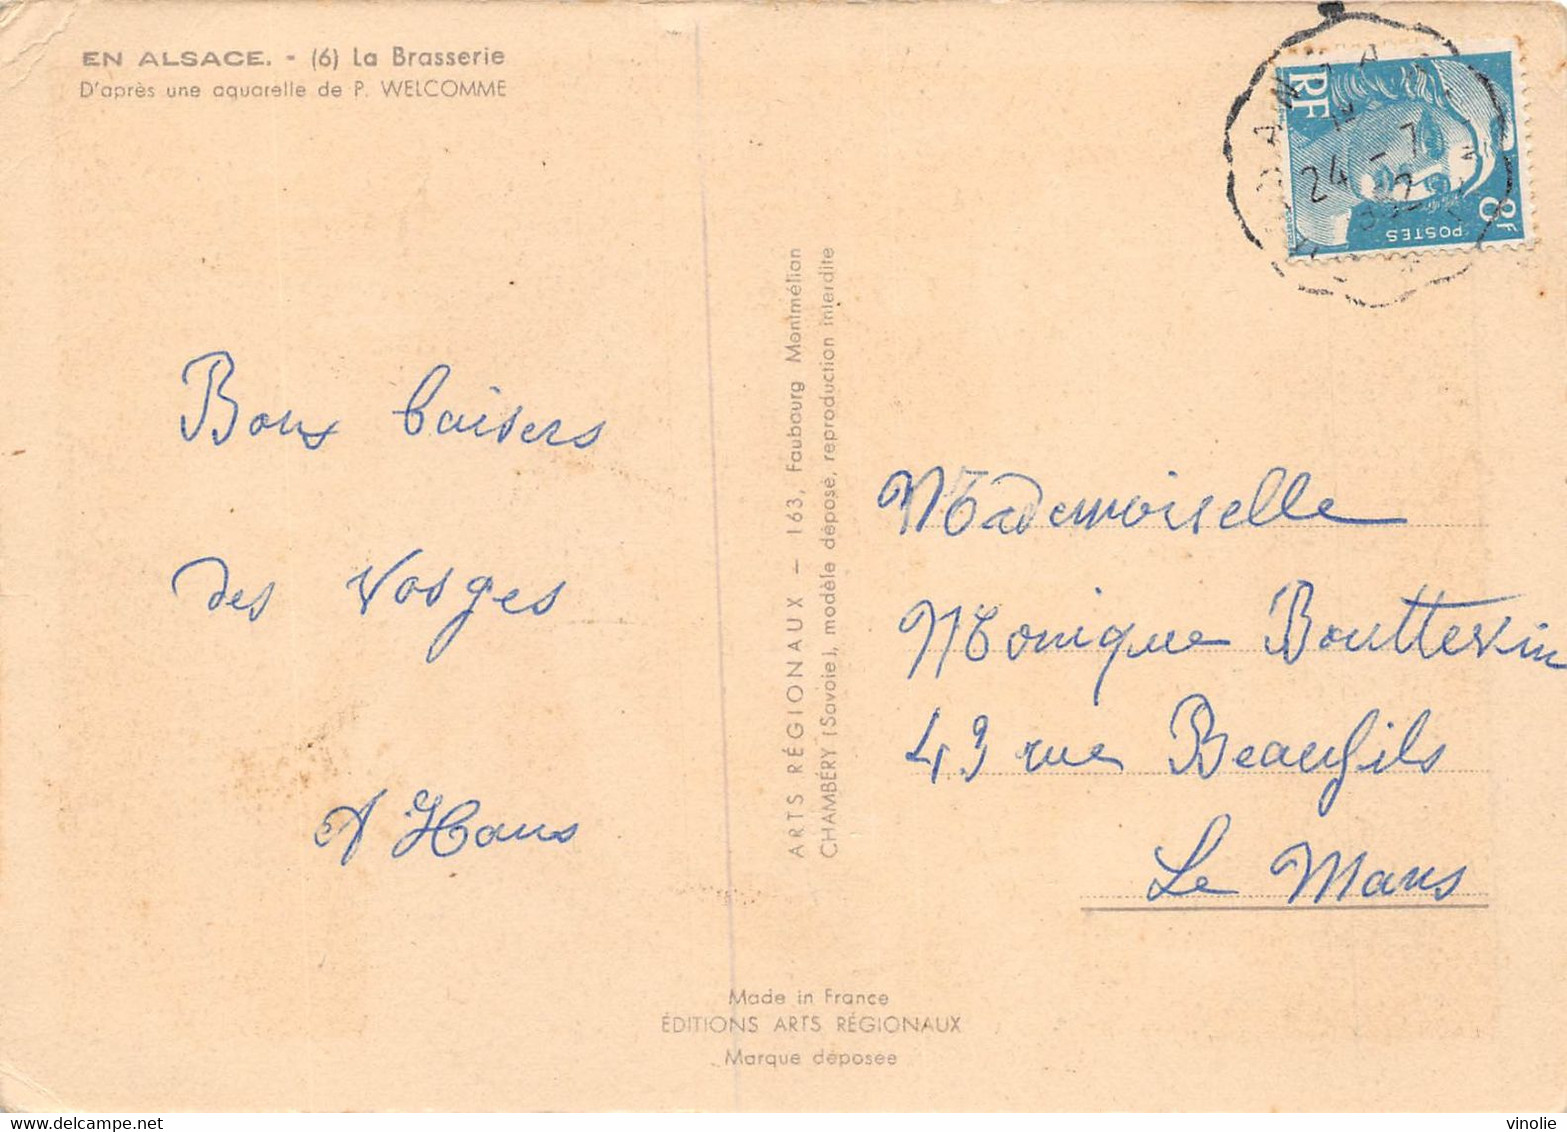 EN ALSACE. - (6) La Brasserie
D'après une aquarelle de P. WELCOMME
Bons baisers
des Vosges
A Haus
ARTS RÉGIONAUX — 163, Faubourg Montmélian
CHAMBÉRY (Savoie), modèle déposé, reproduction interdite
RF
8F
POSTES
24 - 7
Mademoiselle
Monique Bouttevin
43 rue Beaufils
Le Mans
Made in France
ÉDITIONS ARTS RÉGIONAUX
Marque déposée
vinolie
delcampe.net